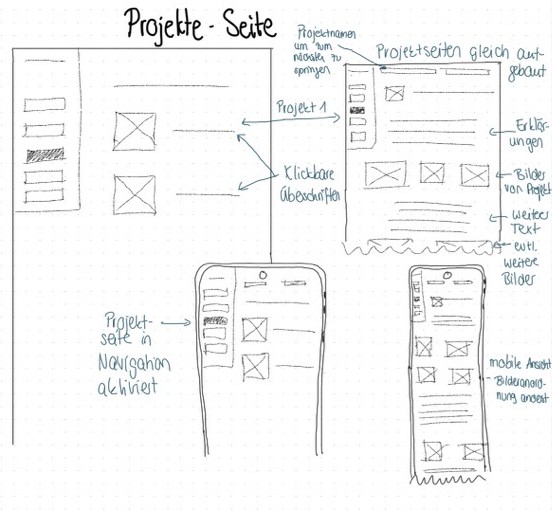 Projekte - Seite
Projektnamen
um zum
nächsten zu
springen
Projektseiten gleich auf-
gebaut
Projekt 1
Klickbare
Überschriften
Erklär-
ungen
Bilder
von Projekt
weiterer
Text
evtl.
weitere
Bilder
Projekt-
seite in
Navigation
aktiviert
mobile Ansicht
Bilderanord-
nung ändert